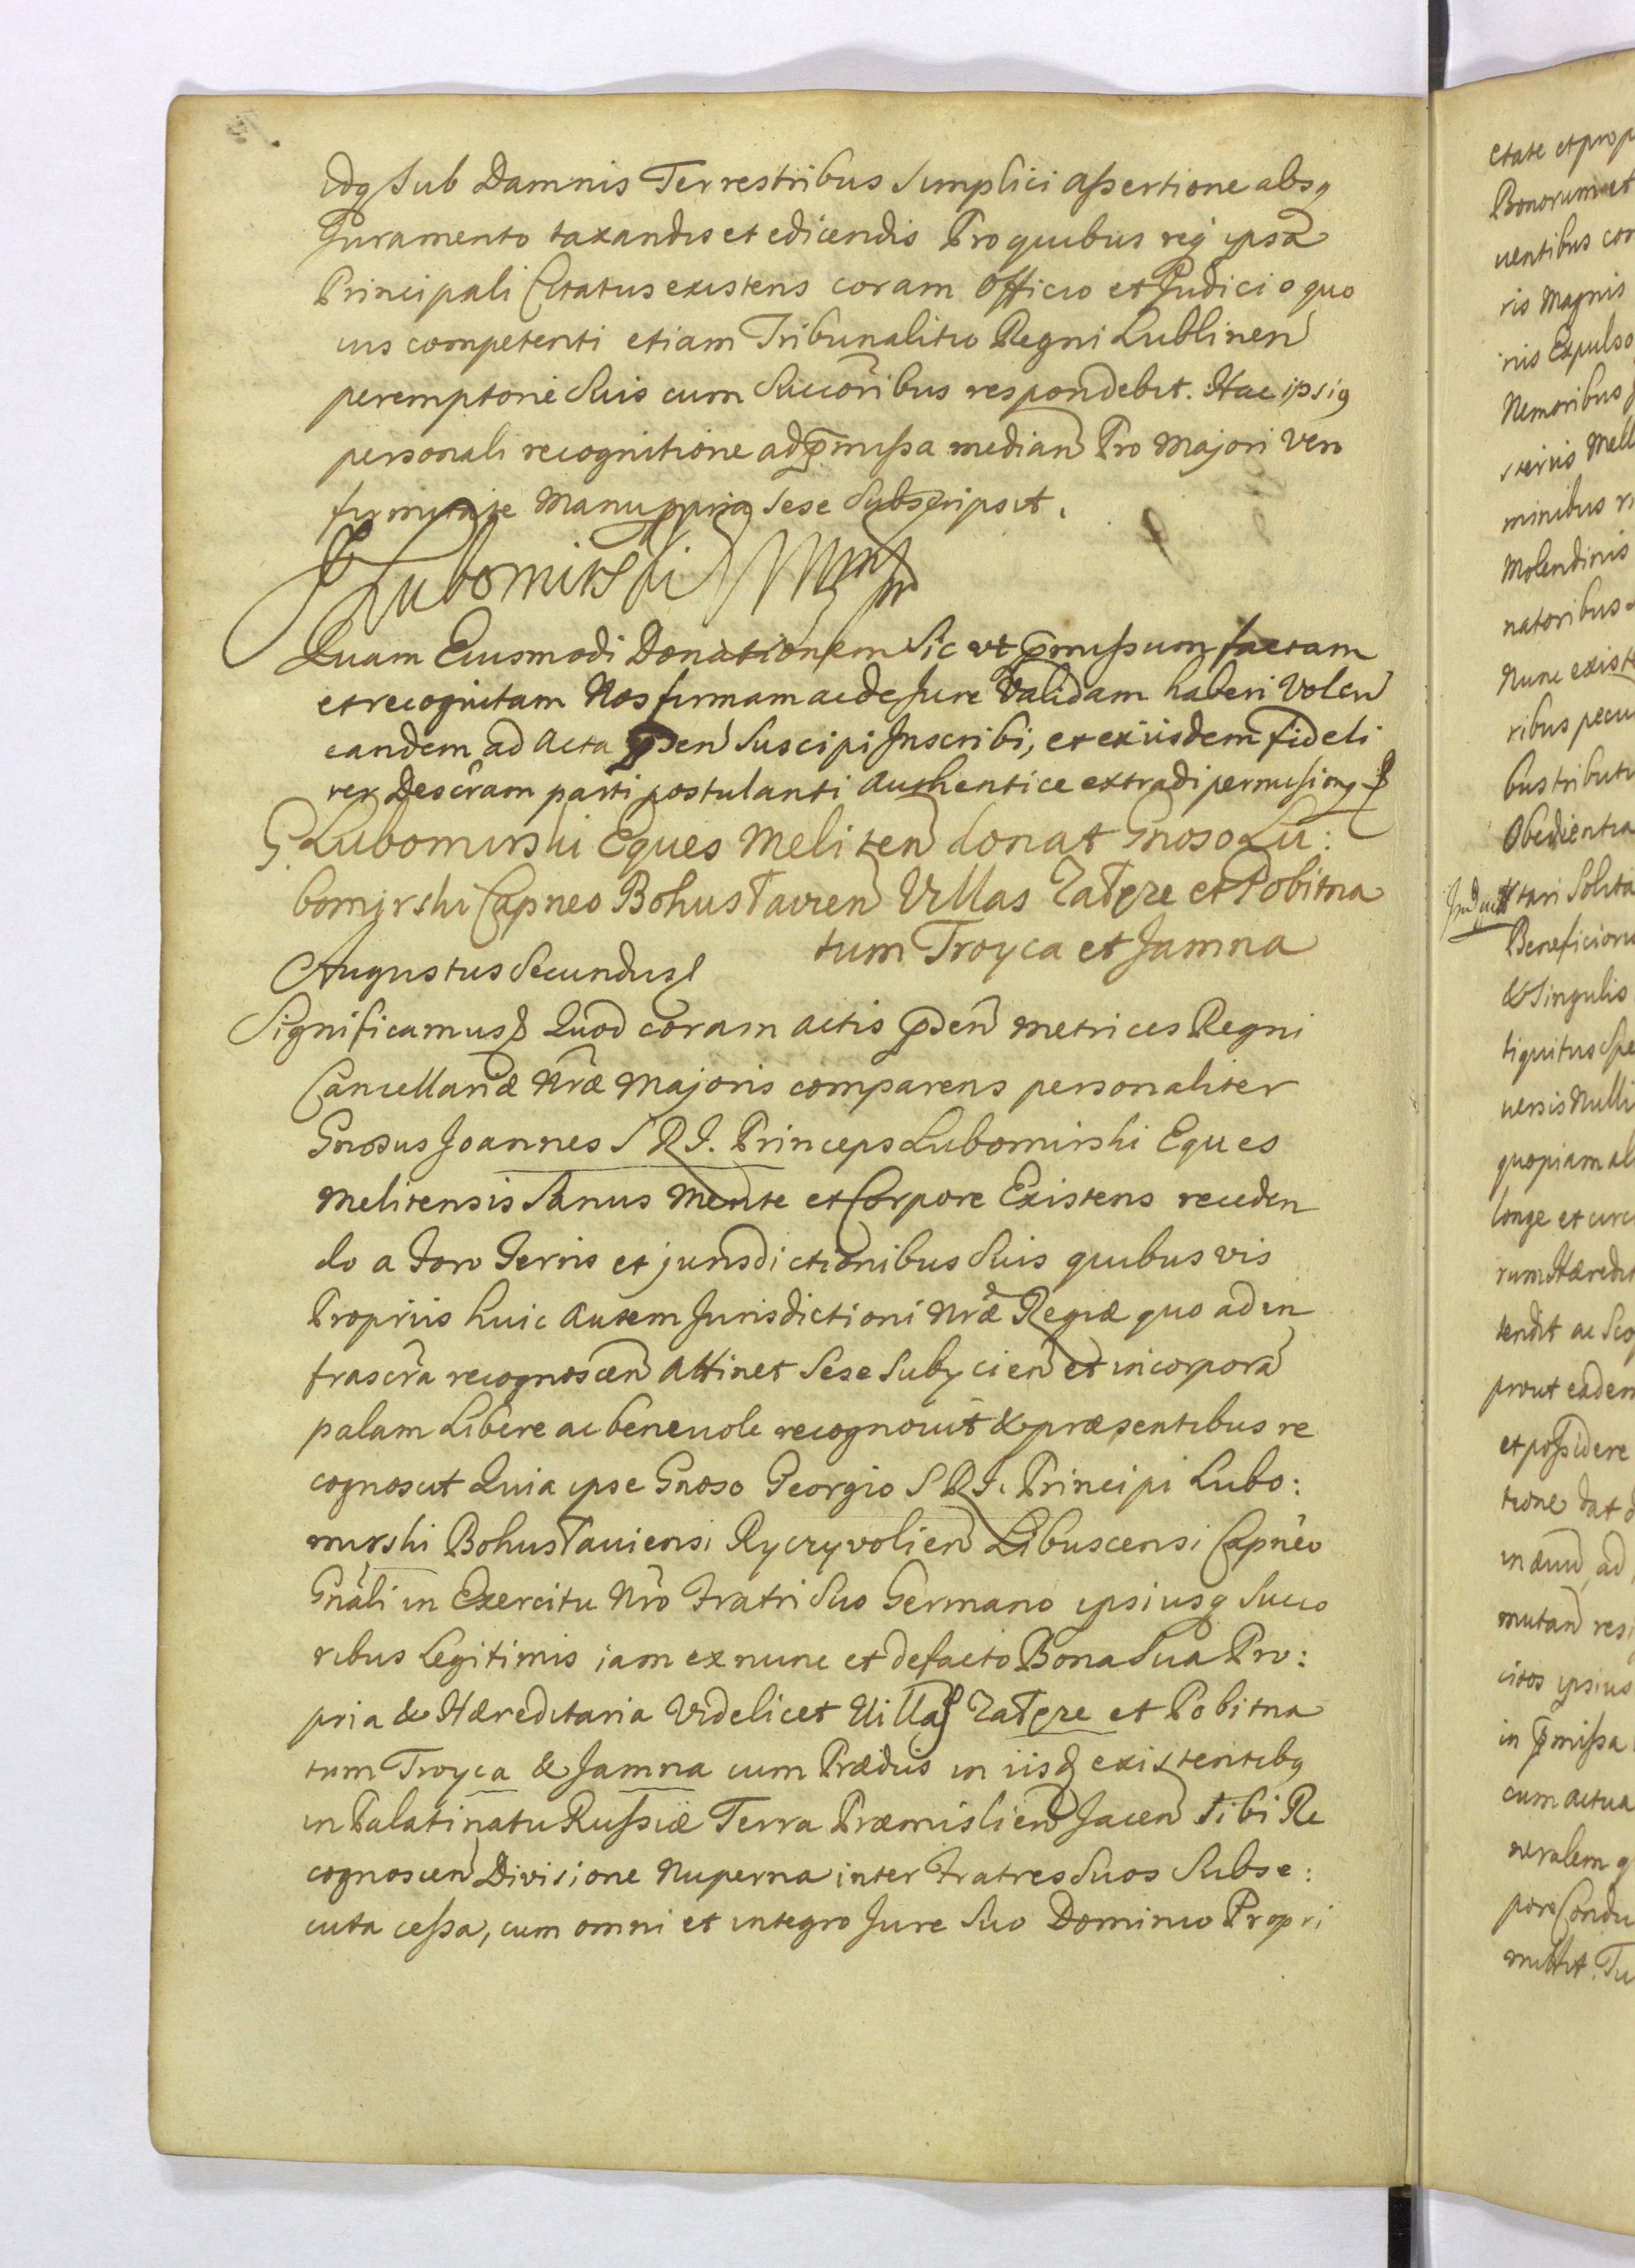 Idq sub Damnis Terrestribus simplici assertione absq
Juramento taxandis et edicendis Pro quibus req ipsā
Principali Citatus existens coram Officio et Judicio quo
uis competenti etiam Tribunalitio Regni Lublinen
peremptorie suis cum Succōribus respondebit. Hac ipsiq
personali recognitione ad p̄missa median Pro Majori Vero
firmitate Manu ppria sese Subscripsit.
J Lubomirski
Quam Eiusmodi Donationem Sic vt p̄missum factam
et recognitam Nos firmam ac de Jure Validam haberi Volen
eandem ad Acta p̄sen Suscipi Inscribi, et ex iisdem fideli
ter Descrām parti postulanti Authentice extradi permisimq
G. Lubomirski Eques Meliten donat Gnoso Lu:
bomirski Capneo Bohuslavien Villas Zalęze et Pobitna
tum Troyca et Jamna
Augustus Secundus
Significamus Quod coram actis p̄sen Metrices Regni
Cancellariæ Nrǣ Majoris comparens personaliter
Gnosus Joannes S R I. Princeps Lubomirski Eques
Melitensis Sanus Mente et Corpore Existens receden
do a Foro Terris et jurisdictionibus Suis quibusvis
Propriis huic autem Jurisdictioni Nrǣ Regiæ quo ad in
frascrā recognoscen Attinet Sese Subijcien et incorporā
palam Libere ac beneuole recognouit & præsentibus re
cognoscit Quia ipse Gnoso Georgio S R I. Principi Lubo:
mirski Bohuslauiensi Ryczyvolien Libuscensi Capnēo
Gnāli in Exercitu Nrō Fratri Suo Germano ipsiusq Succo
ribus Legitimis iam ex nunc et de facto Bona Sua Pro:
pria & Hæreditaria Videlicet Uillas Zalęze et Pobitna
tum Troyca & Jamna cum Prædiis in iisd existentibq
in Palatinatu Russiæ Terra Præmislien Jacen Sibi Re
cognoscen Divisione Nuperna inter Fratres Suos Subse:
cuta cessa, cum omni et integro Jure Suo Dominio Propri
etate et prop
Bonorum et
uentibus cor
ris Magnis
nis Expulso
Nemoribus
minibus
Molendinis
natoribus
Nunc existe
ribus pecu
bus tributi
Obedientia
tari Solita
Beneficioru
& Singulis
tiquitus Spe
uersis Nulli
quopiam al
longe et circ
rum Hæredit
tendit ac
prout eadem
et possidere
tione dat d
in æuu ad
mutan resi
itos ipsius
in p̄missa
cum actua
neralem q
pore Condu
mittit. Tu